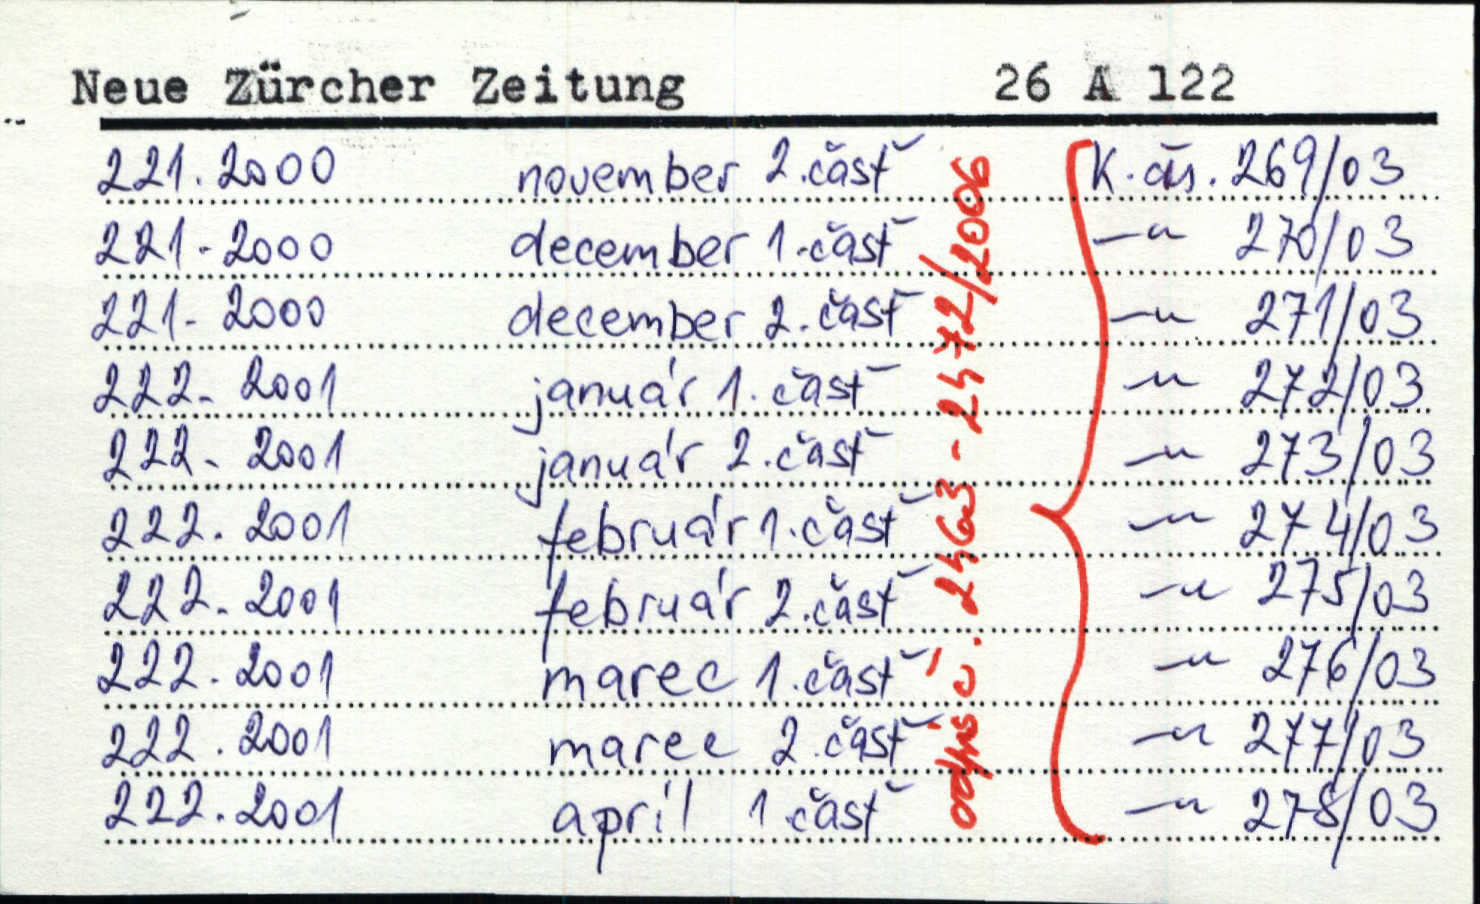 Neue Zürcher Zeitung 26 A 122
221.2000 november 2.časť K.čís. 269/03
221-2000 december 1.časť —„— 270/03
221-2000 december 2.časť —„— 271/03
222-2001 január 1.časť —„— 272/03
222-2001 január 2.časť —„— 273/03
222.2001 február 1.časť —„— 274/03
222-2001 február 2.časť —„— 275/03
222.2001 marec 1.časť —„— 276/03
222.2001 marec 2.časť —„— 277/03
222.2001 apríl 1.časť —„— 278/03
odpis č. 2463-2472/2006